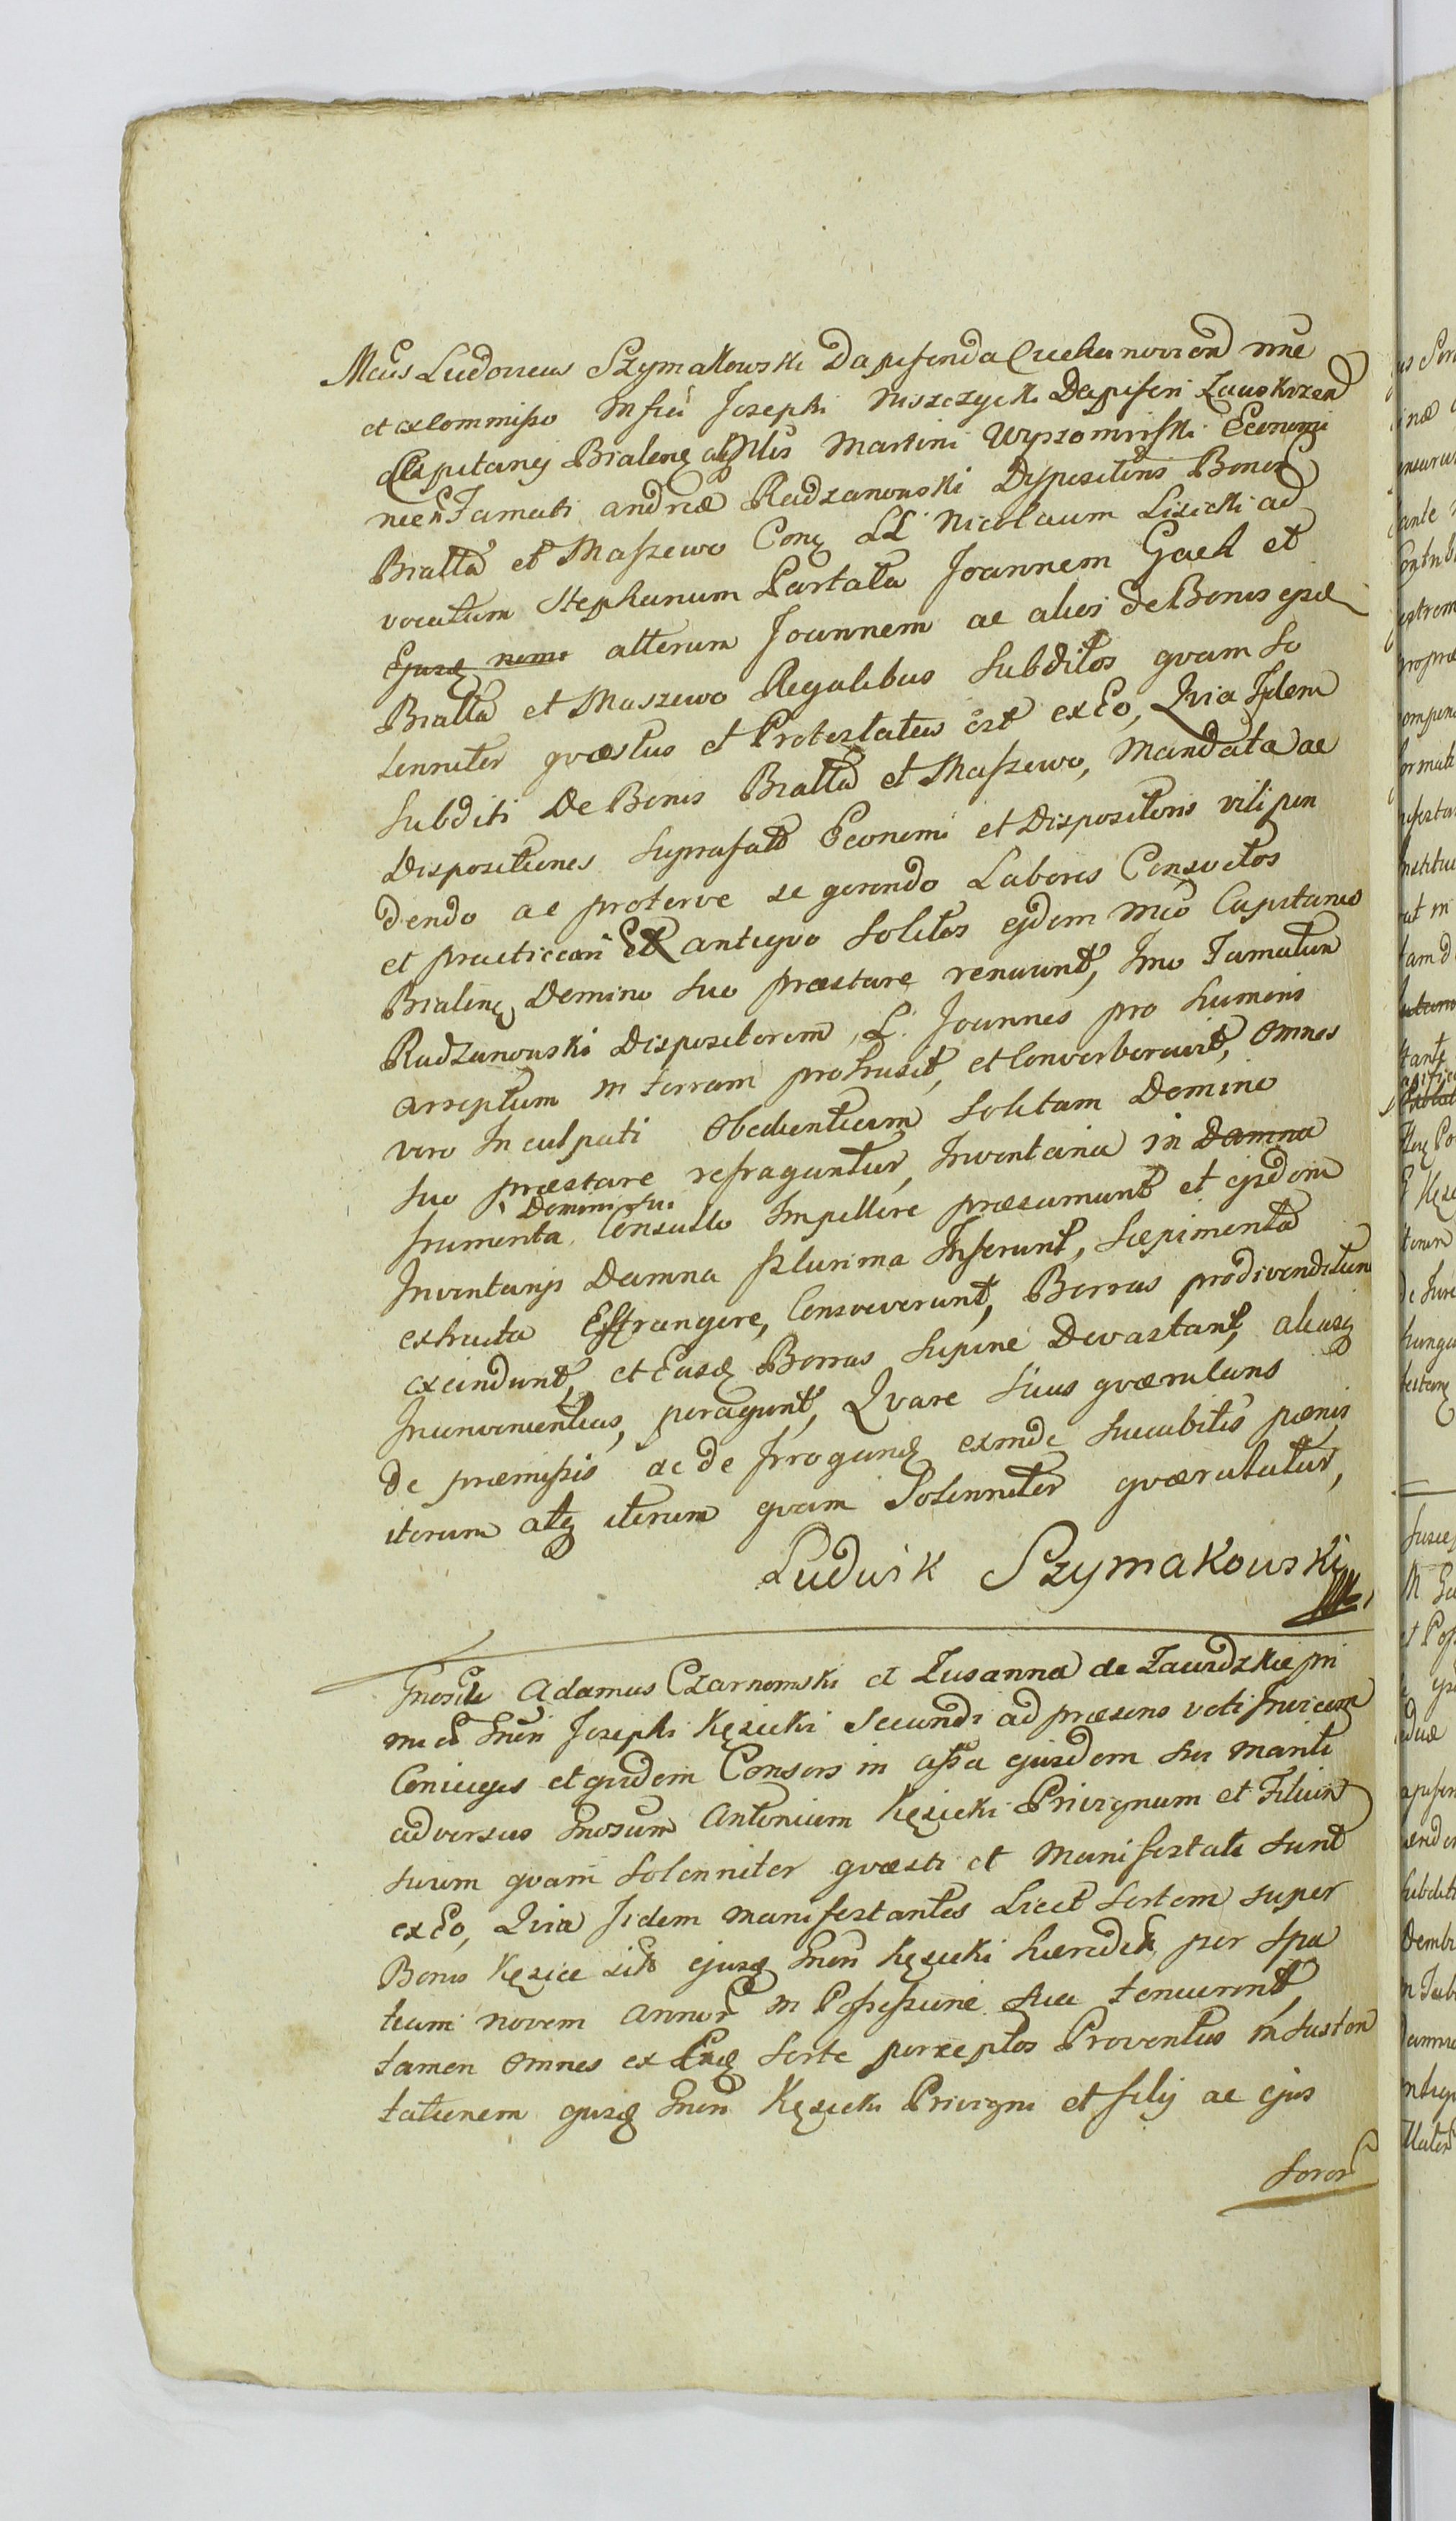 Mcus Ludovicus Szymakowski Dapiferida Ciechanovien nne
et ex Commisso Mfici Josephi Niszczycki Dapiferi Zawskrzen
Capitanei Bialens atq Nlis Martini Wyszomirski Economi
nec n Famati Andreæ Radzanowski Dispositoris Bonor
Biała et Maszewo Conq LL Nicolaum Lisicki ad
vocatum Stephanum Partała Joannem Gach et
Ejusq nomi alterum Joannem ac alios de Bonis ejsd
Biała et Maszewo Regalibus Subditos qvam So
lenniter qvæstus et Protestatus est ex Eo, Qvia Iidem
Subditi De Bonis Biała et Maszewo, Mandata ac
Dispositiones Suprafato Economi et Dispositoris vilipen
dendo ac proterve se gerendo Labores Consvetos
et practiccari Ex antiqvo Solitos ejdem Mco Capitaneo
Bialens Domino Suo præstare renuunt, Imo Famatum
Radzanowski Dispositorem, L. Joannes pro humeris
arreptum in terram protrusit, et Converberavit, Omnes
vero Inculpati Obedientiam Solitam Domino
Suo præstare refraguntur, Inventaria in Damna
frumenta Domini Sui Consulto Impellere præsumunt et ejsdem
Inventarijs Damna plurima Inferunt, Sæpimenta
extructa Effrangere, Consveverunt, Borras prodivenditum
excindunt, et Easq Borras Supine Devastant, aliasq
Inconvenientias, peragunt, Qvare Suus qværulans
de præmissis ac de Irrogand exinde Succubitis pænis
iterum atq iterum qvam Solenniter qværulatur,
Ludwik Szymakowski
Gnosi Adamus Czarnomski et Zusanna de Zawidzkie pri
mi et Gnen Josephi Kęsicki Secundi ad præsens voti Invicem
Coniuges et qvidem Consors in assa ejusdem Sui Mariti
adversus Gnosum Antonium Kęsicki Privignum et Filium
Suum qvam Solenniter qvæsti et Manifestati Sunt
ex Eo, Qvia Iidem Manifestantes Licet Sortem super
Bonis Kęsice sito ejusq Gnen Kęsicki hæredit per Spa
tium novem annor in Possessione Sua tenuerint,
tamen Omnes ex Eaq Sorte perceptos Proventus in Susten
tationem ejusq Gnen Kęsicki Privigni et filij ac ejus
Soror